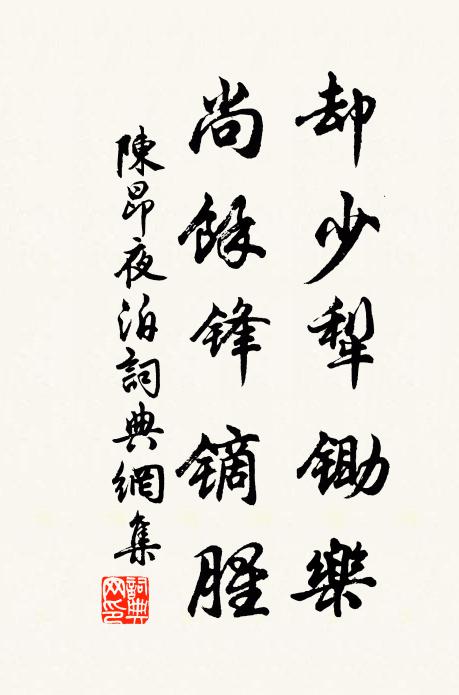 却少犁鋤樂
尚餘鋒鏑腥
陳昂夜泊詞典網集
詞典網印